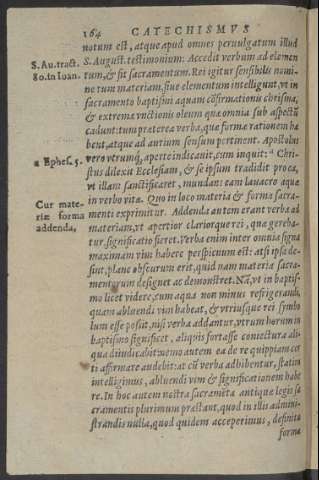 164 CATECHISMVS
notum est, atque apud omnes peruulgatum illud
S. Au. tract. S. August. testimonium: Accedit verbum ad elemen
80. in Ioan. tum, & fit sacramentum. Rei igitur sensibilis nomi-
ne tum materiam, siue elementum intelligunt, vt in
sacramento baptismi aquam cōfirmationis chrisma,
& extremæ vnctionis oleum quæ omnia sub aspectū
cadunt: tum præterea verba, quæ formæ rationem ha
bent, atque ad aurium sensum pertinent. Apostolus
a Ephes. 5. vero vtrumq́, aperte indicauit, cum inquit: ᵃ Chri-
stus dilexit Ecclesiam, & se ipsum tradidit pro ea,
vt illam sanctificaret, mundans eam lauacro aquæ
Cur mate- in verbo vitæ. Quo in loco materia & forma sacra-
riæ forma menti exprimitur. Addenda autem erant verba ad
addenda, materiam, vt apertior clariorque rei, quæ gereba-
tur, significatio fieret. Verba enim inter omnia signa
maximam vim habere perspicuum est: at si ipsa de-
sint, plane obscurum erit, quid nam materia sacra-
mentorum designet ac demonstret. Nā, vt in baptis-
mo licet videre, cum aqua non minus refrigerandi,
quam abluendi vim habeat, & vtriusque rei symbo
lum esse possit, nisi verba addantur, vtrum horum in
baptismo significet, aliquis fortasse coniectura ali-
qua diiudicabit: nemo autem ea de re quippiam cer
ti affirmare audebit: at cū verba adhibentur, statim
intelligimus, abluendi vim & significationem habe
re. In hoc autem nostra sacramēta antiquæ legis sa
cramentis plurimum præstant, quod in illis admini-
strandis nulla, quod quidem acceperimus, definita
forma